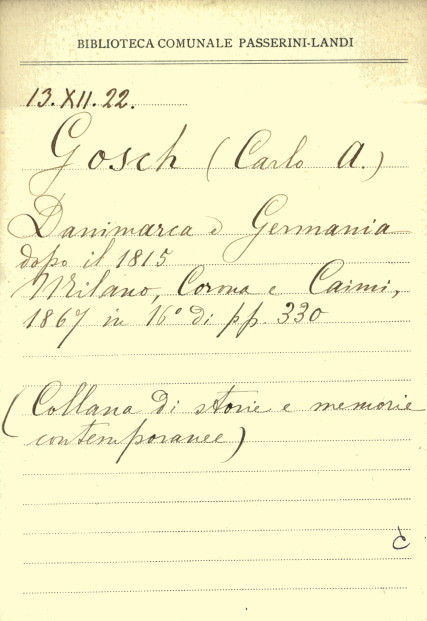 BIBLIOTECA COMUNALE PASSERINI-LANDI
13.XII.22.
Gosch (Carlo A.)
Danimarca e Germania
dopo il 1815
Milano, Corona e Caimi,
1867 in 16° di pp. 330
(Collana di storie e memorie
contemporanee)